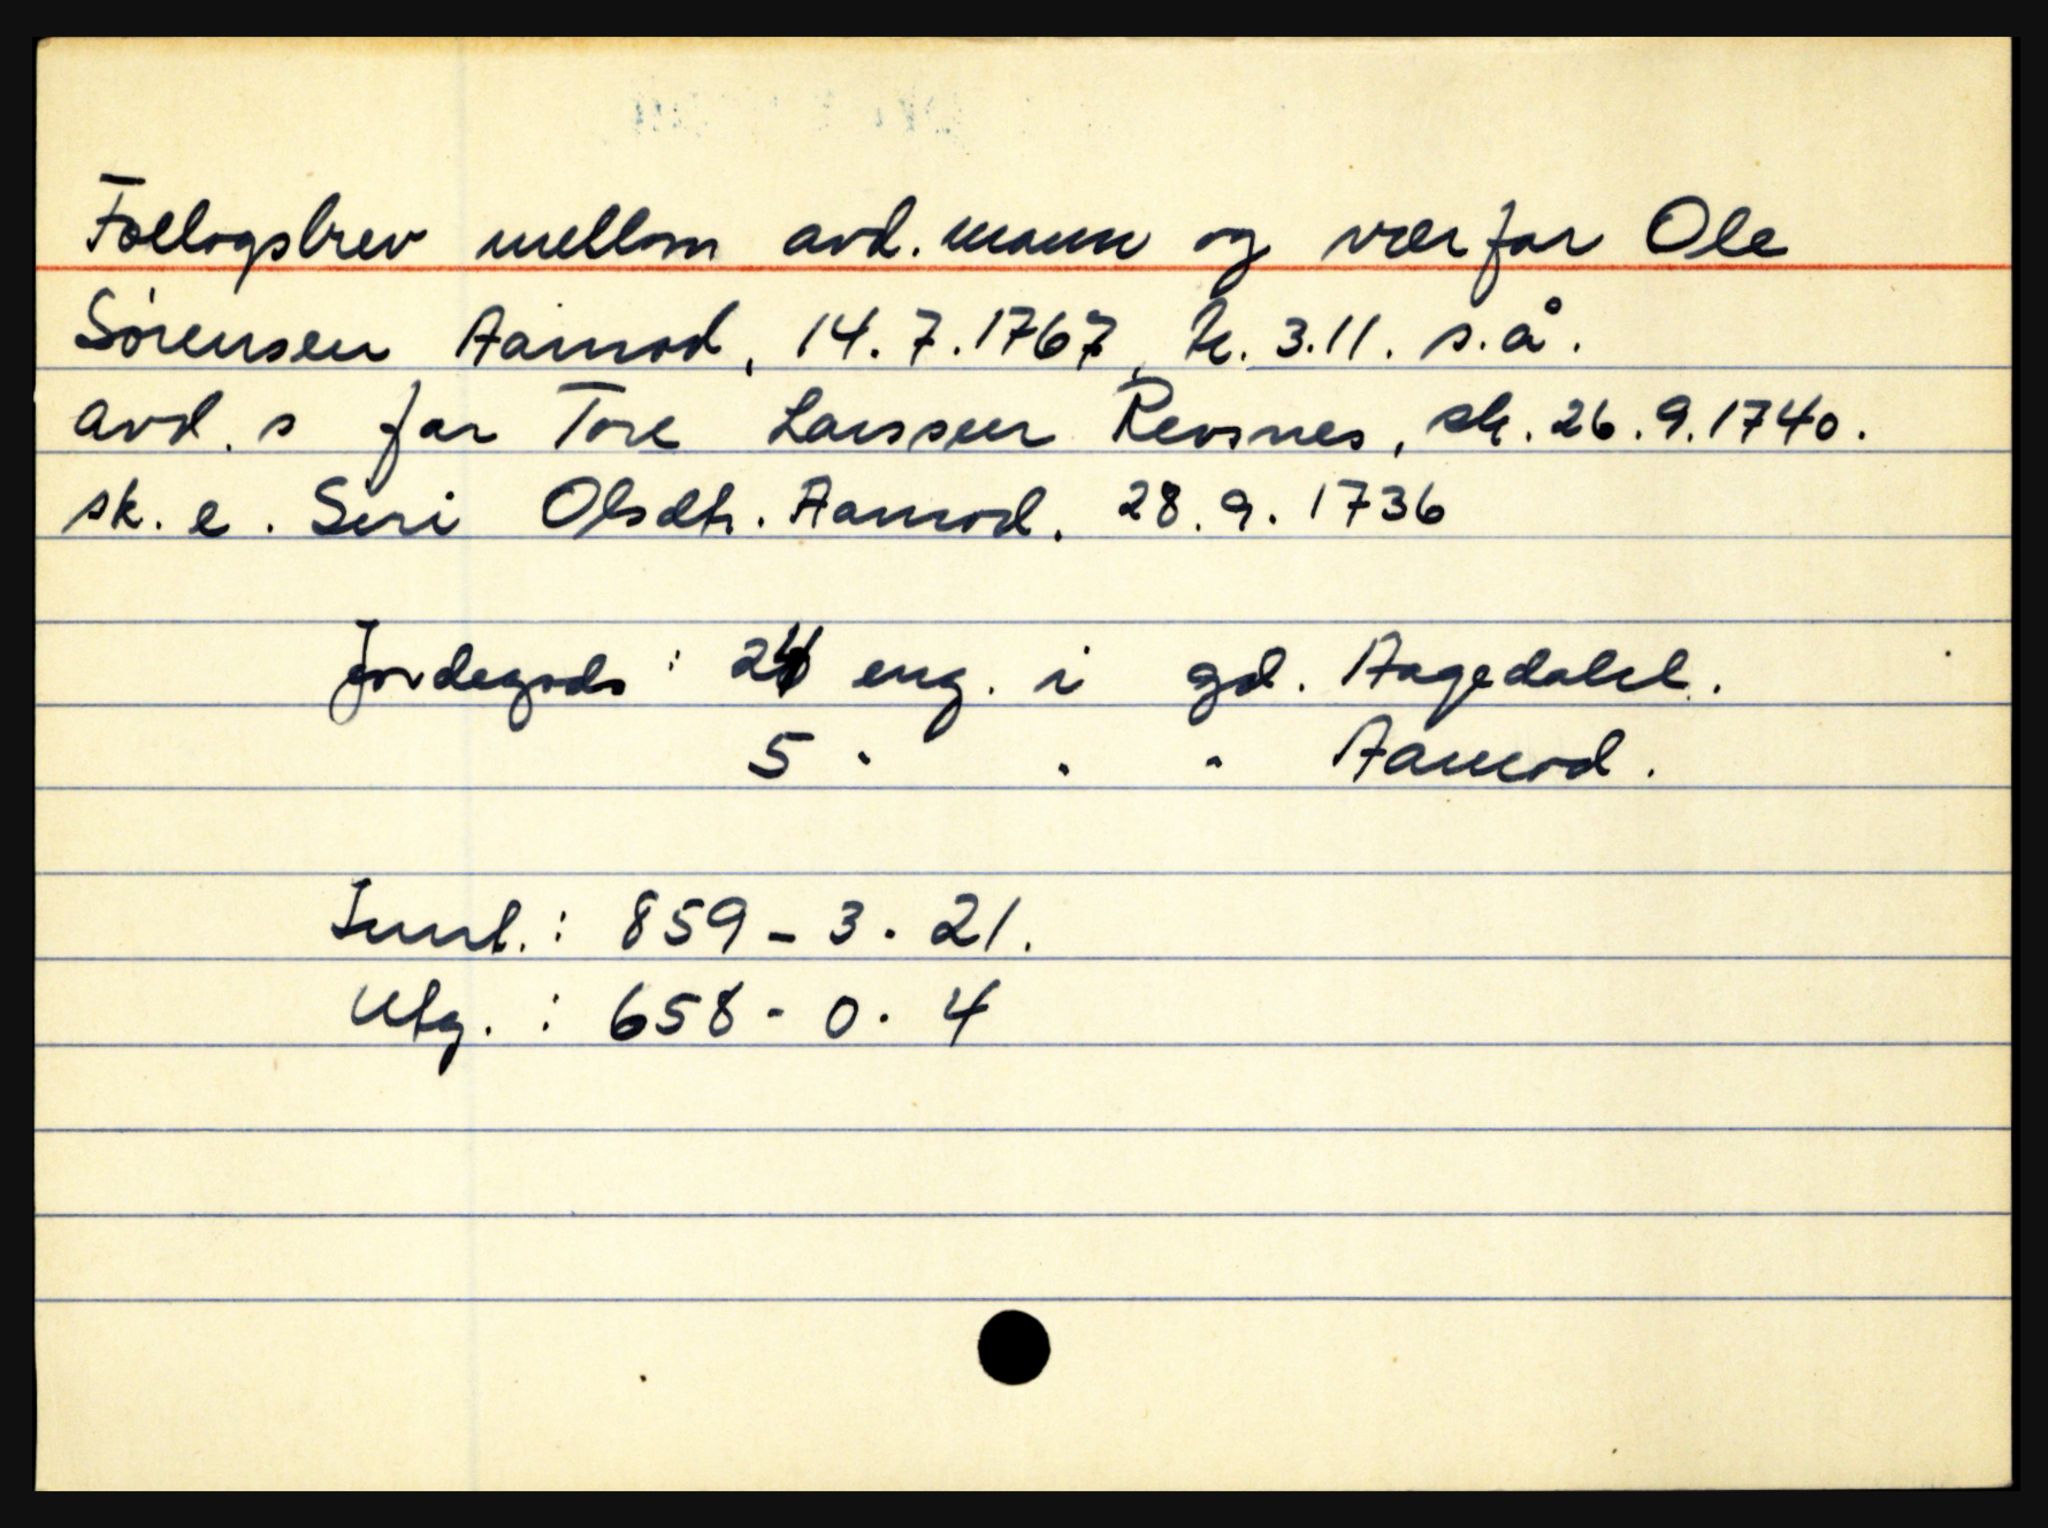 Fællogsbrev mellom avd. mann og værfar Ole
Sørensen Aamod, 14.7.1767, tl. 3.11. s.å.
avd. s far Tore Larssen Revsnes, sk. 26.9.1740.
sk. e. Siri Olsdtr. Aamod. 28.9.1736
Jordegods: 24 eng. i gd. Aagedahl.
5 " " " Aamod.
Innt.: 859 - 3 - 21.
Utg.: 658 - 0 - 4